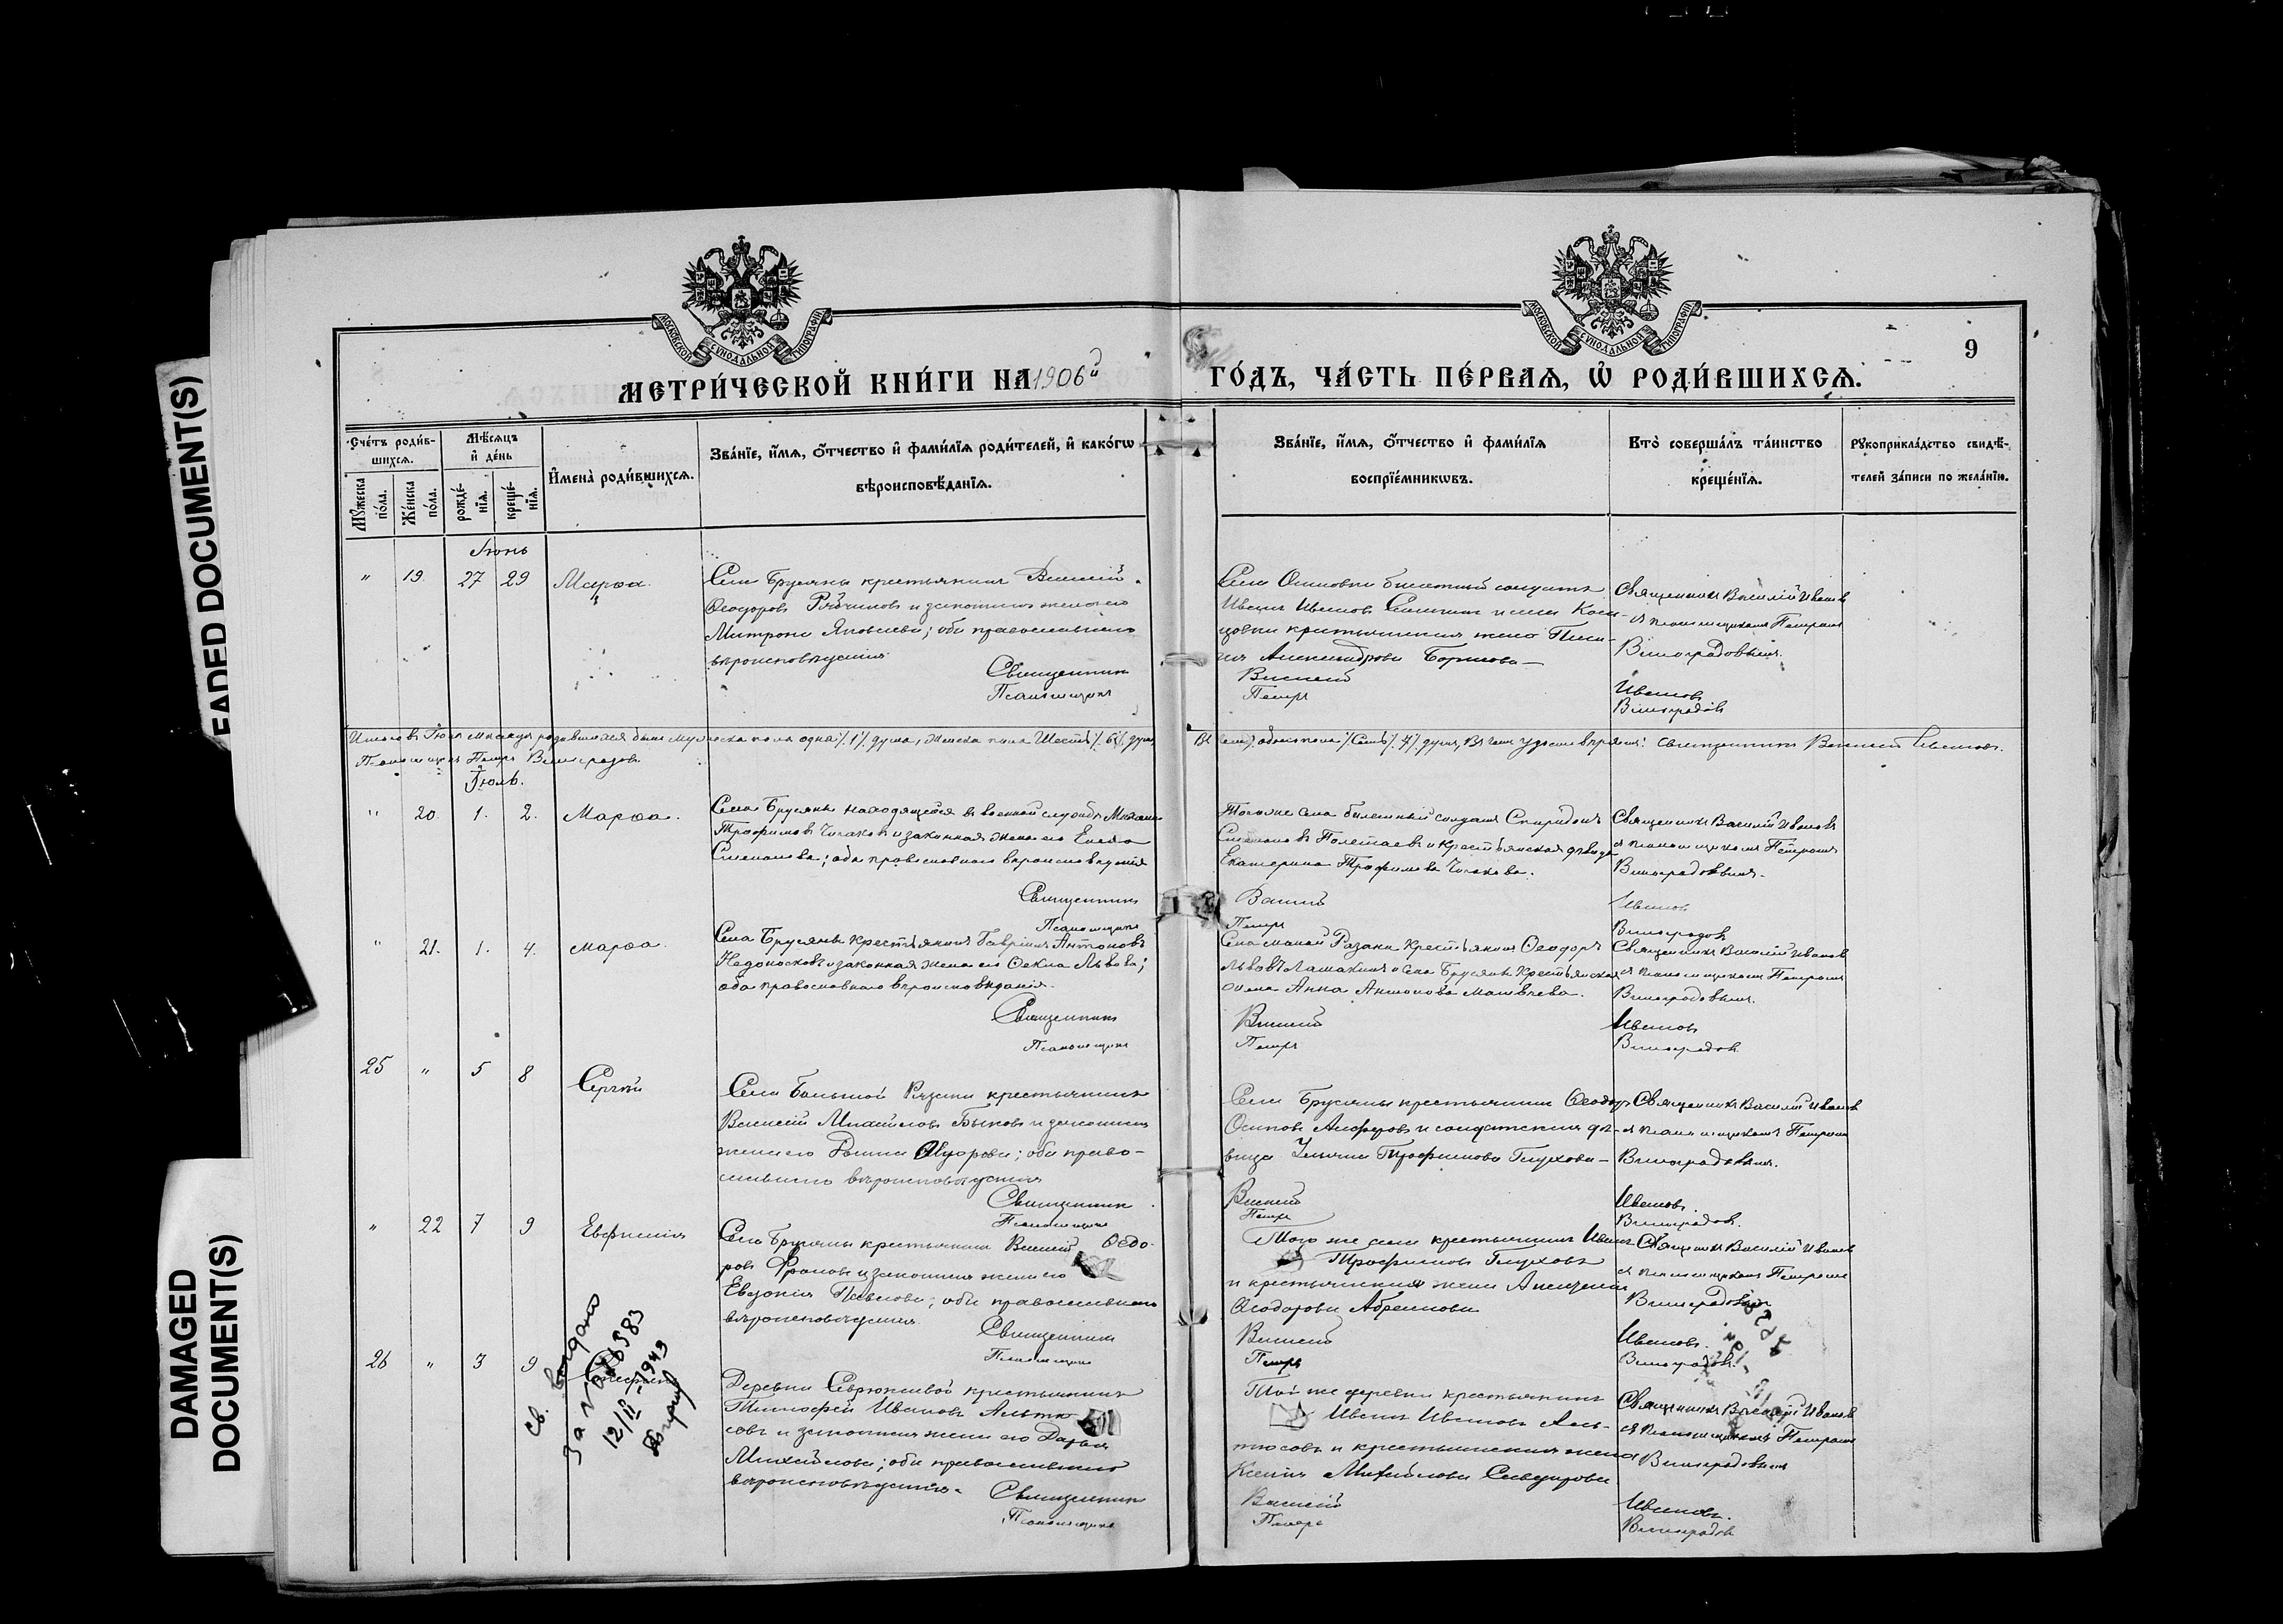 FADED DOCUMENT(S)
DAMAGED
DOCUMENT(S)
МОСКОВСКОЙ СѴНОДАЛЬНОЙ ТИПОГРАФІИ
МОСКОВСКОЙ СѴНОДАЛЬНОЙ ТИПОГРАФІИ
9
МЕТРИ́ЧЕСКОЙ КНИ́ГИ НА 1906й ГО́ДЪ, ЧА́СТЬ ПЕ́РВАѦ, Ѡ҆ РОДИ́ВШИХСѦ.
Сче́тъ роди́в-
шихсѧ.
Мꙋ́жеска
по́ла.
Же́нска
по́ла.
Мѣ́сѧцъ
и҆ де́нь
рожде́-
нїѧ.
креще́-
нїѧ.
И҆мена̀ роди́вшихсѧ.
Зва́нїе, и҆́мѧ, ѻ҆́тчество и҆ фами́лїѧ роди́телей, и҆ како́гѡ
вѣроисповѣ́данїѧ.
Зва́нїе, и҆́мѧ, ѻ҆́тчество и҆ фами́лїѧ
воспрїе́мникѡвъ.
Кто̀ соверша́лъ та́инство
креще́нїѧ.
Рꙋкоприкла́дство свидѣ́-
телей за́писи по жела́нїю.
Іюнь
" 19. 27 29 Марѳа.
Села Брусяны крестьянинъ Василій
Ѳеодоровъ Рябчиковъ и законная жена его
Матрона Яковлева; оба православнаго
вѣроисповѣданія
Священникъ
Псаломщикъ
Села Осиновки билетный солдатъ
Иванъ Ивановъ
крестьянская жена
Александрова
Василій
Петръ
Священникъ Василій Ивановъ
съ псаломщикомъ Петромъ
Виноградовымъ.
Ивановъ
Виноградовъ
Итого въ Іюнѣ мѣсяцѣ родившихся было мужеска пола одна /1/ душа, женска пола шесть /6/ душъ,
обоего пола /семь/ 7/ душъ, въ чемъ удостовѣряемъ: священникъ Василій Ивановъ.
Псаломщикъ Петръ Виноградовъ
Іюль.
" 20. 1. 2. Марѳа.
Села Брусяны находящейся въ военной службѣ Михаилъ
Трофимовъ Чугаковъ и законная жена его Елена
Степанова; оба православнаго вѣроисповѣданія
Священникъ
Псаломщикъ
Тогоже села билетный солдатъ Спиридонъ
Степановъ Полетаевъ и крестьянская дѣвица
Екатерина Трофимова Чугакова.
Василій
Петръ
Священникъ Василій Ивановъ
съ псаломщикомъ Петромъ
Виноградовымъ.
Ивановъ
Виноградовъ
" 21. 1. 4. Марѳа.
Села Брусяны крестьянинъ Гавріилъ Антоновъ
Недоносковъ и законная жена его Ѳекла Львова;
оба православнаго вѣроисповѣданія.
Священникъ
Псаломщикъ
Села малой Рязани крестьянинъ Ѳеодоръ
Львовъ Ламакинъ и села Брусянъ крестьянская
жена Анна Антонова Матвѣева.
Василій
Петръ
Священникъ Василій Ивановъ
съ псаломщикомъ Петромъ
Виноградовымъ.
Ивановъ
Виноградовъ
25 " 5 8 Сергѣй
Села Большой Рязани крестьянинъ
Василій Михайловъ Быковъ и законная
жена его; оба право-
славнаго вѣроисповѣданія
Священникъ
Псаломщикъ
Села Брусяны крестьянинъ Ѳеодоръ
Осиповъ и солдатская дѣ-
вица Трофимова Глухова
Василій
Петръ
Священникъ Василій Ивановъ
съ псаломщикомъ Петромъ
Виноградовымъ.
Ивановъ
Виноградовъ.
" 22 7 9 Евфимія
Села Брусяны крестьянинъ Василій Ѳедо-
ровъ Фроловъ и законная жена его
Евдокія Павлова; оба православнаго
вѣроисповѣданія.
Священникъ
Псаломщикъ
Того же села крестьянинъ Иванъ
Трофимовъ Глуховъ
и крестьянская жена
Ѳеодорова Абрамова
Василій
Петръ
Священникъ Василій Ивановъ
съ псаломщикомъ Петромъ
Виноградовымъ
Ивановъ.
Виноградовъ.
26 " 3 9
св. выдано
12/II-1949
Деревни Севрюкаевой крестьянинъ
Тимофей Ивановъ
и законная жена его Дарья
Михайлова; оба православнаго
вѣроисповѣданія.
Священникъ
Псаломщикъ
Той же деревни крестьянинъ
Иванъ Ивановъ Аль-
тюсовъ и крестьянская жена
Ксенія Михайлова
Василій
Петръ
Священникъ Василій Ивановъ
съ псаломщикомъ Петромъ
Виноградовымъ
Ивановъ.
Виноградовъ